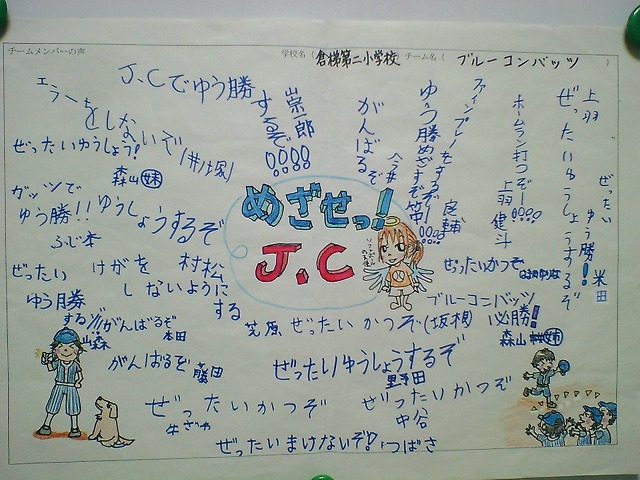 チームメンバーの声
学校名（倉梯第二小学校）チーム名（ブルーコンバッツ）
J.Cでゆう勝
するぞ
山崇一郎
エラーをしな
ないぞ
(井ノ塚)
ぜったいゆうしょう!
森山妹
ガッツで
ゆう勝!!
ふじ本
ゆうしょうするぞ
村松
がんばるぞ
今井
ゆう勝めざすぞ
竹中
ファインプレーをするぞー
良輔
ホームラン打つぞー!
上羽健斗
上羽
ぜったいゆうしょうするぞ
ぜったい
ゆう勝!!
米田
めざせっ!
J.C
ぜったいかつぞ
ぜったい
ゆう勝
する!!!
山森
けがを
しないように
する
がんばるぞ
本田
がんばるぞ
藤田
芝原
ぜったいかつぞ(坂根)
ブルーコンバッツ
必勝!
森山姉
ぜったいゆうしょうするぞ
黒田
ぜったいかつぞ
牛ざわ
ぜったいかつぞ
中谷
ぜったいまけないぞ!
つばさ